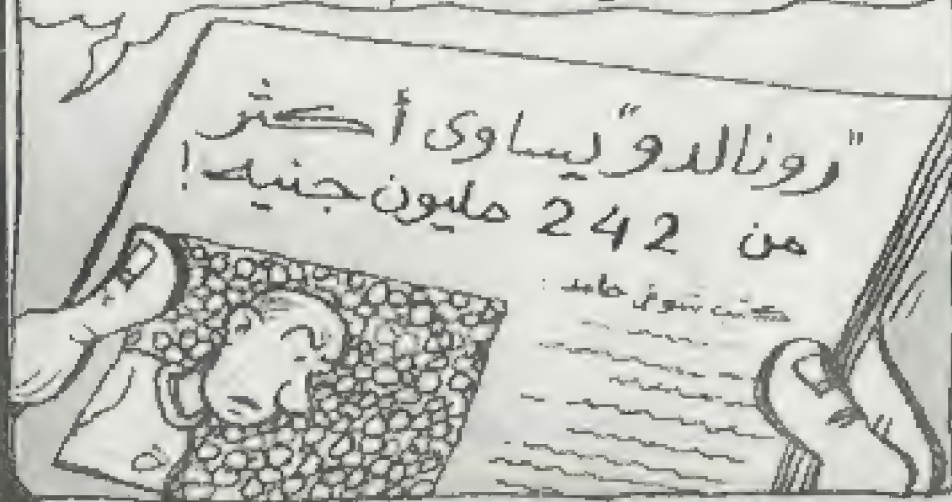 "رونالدو" يساوى أكثر
من 242 مليون جنيه!
كتب شوقى حامد: